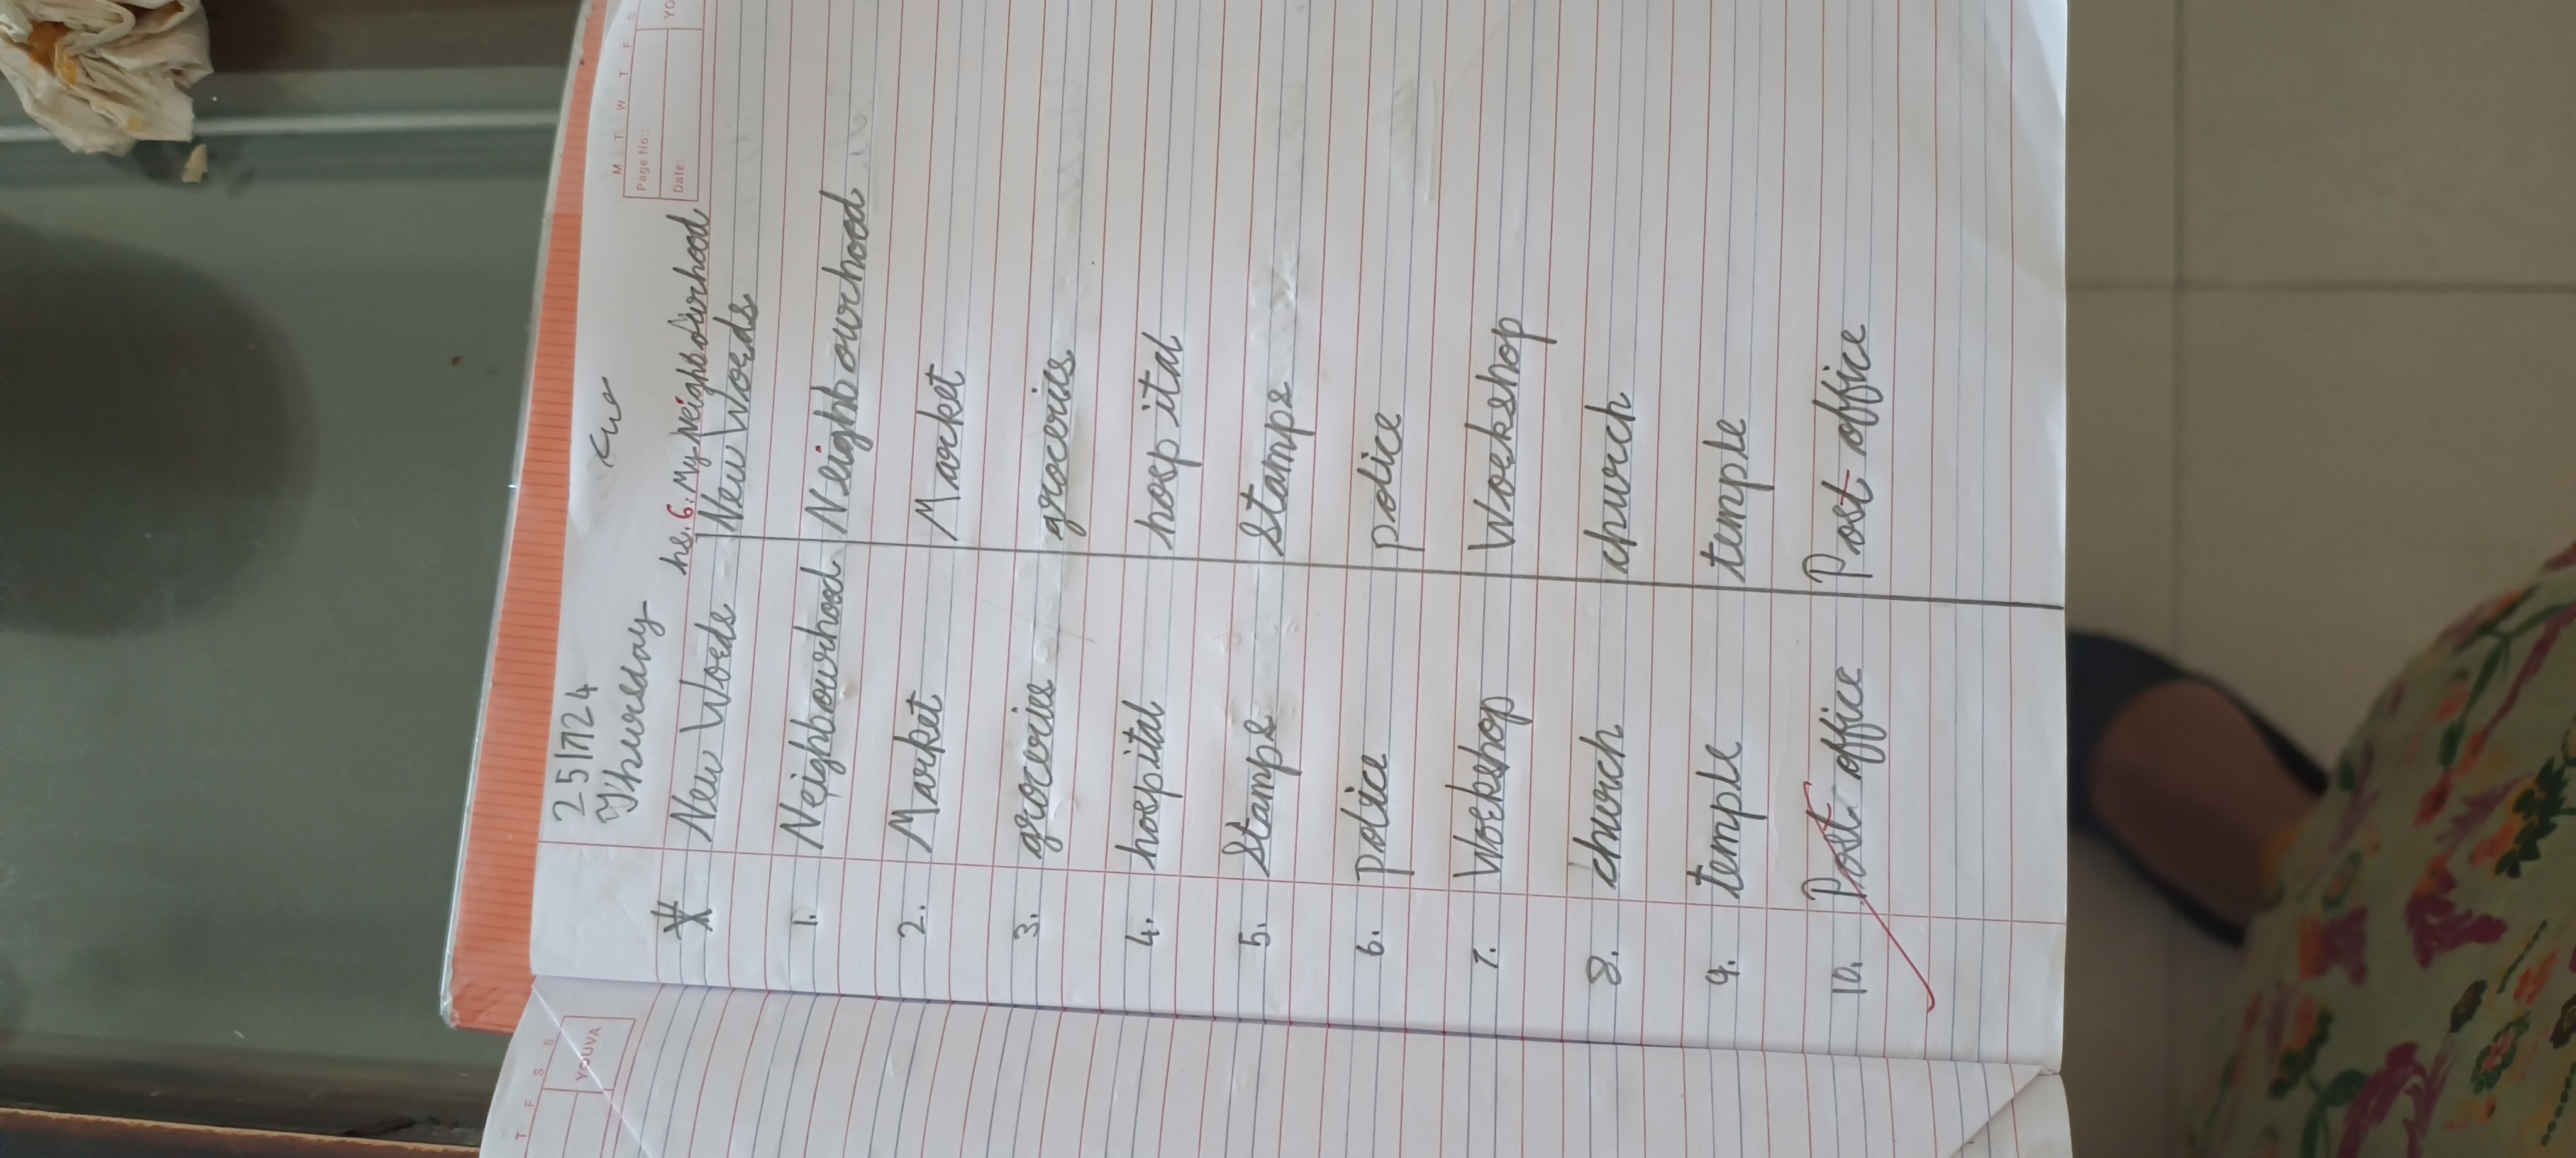 M T W T F S
Page No.:
Date:
YO
25/7/24
Thursday
hs. 6. My Neighbourhood
* New Words New Words
1. Neighbourhood Neighbourhood
2. Market Market
3. groceries groceries
4. hospital hospital
5. Stamps Stamps
6. police police
7. Workshop Workshop
8. church church
9. temple temple
10. Post office Post office
T F S S
YOUVA